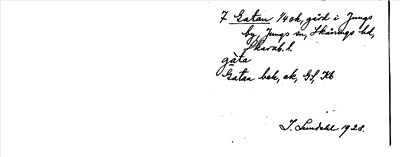 7 Gatan 1/4 ek, gård i Jungs
by, Jungs sn, Skånings hd,
Skarab. l.
gata
Gatan bek, ek, Gf, Kb
I. Lundahl 1928.